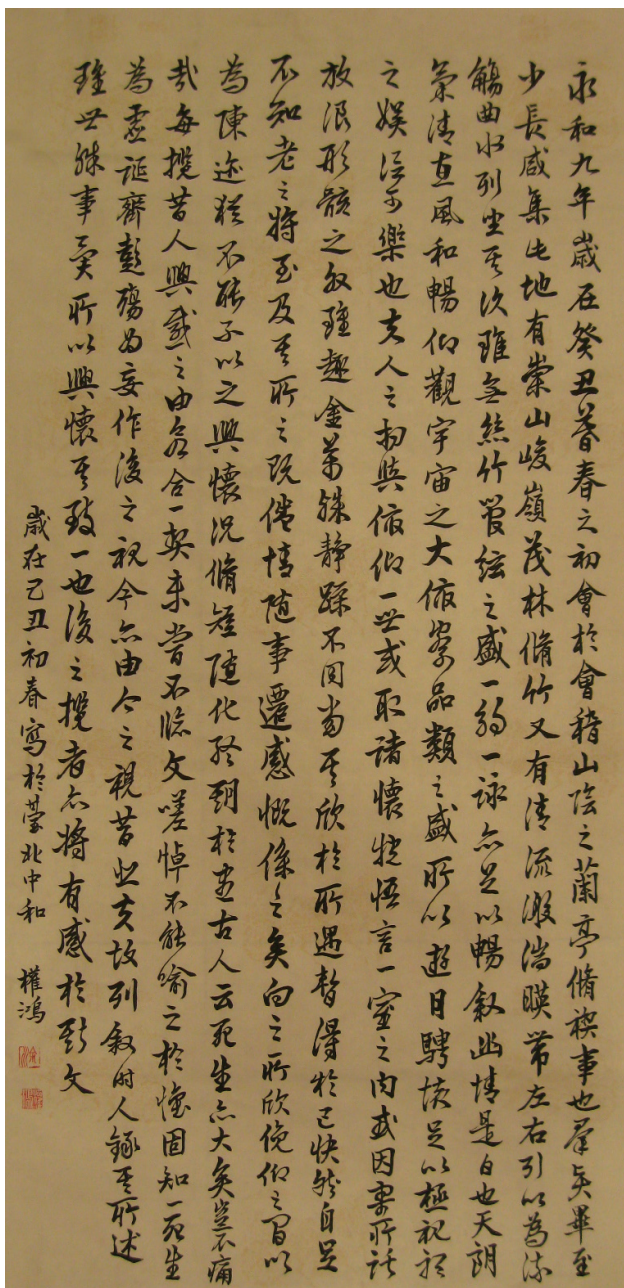 永和九年歲在癸丑暮春之初會於會稽山陰之蘭亭脩禊事也羣賢畢至
少長咸集此地有崇山峻嶺茂林脩竹又有清流激湍暎帶左右引以為流
觴曲水列坐其次雖無絲竹管絃之盛一觴一詠亦足以暢叙幽情是日也天朗
氣清惠風和暢仰觀宇宙之大俯察品類之盛所以遊目騁懷足以極視聽
之娛信可樂也夫人之相與俯仰一世或取諸懷抱悟言一室之內或因寄所託
放浪形骸之外雖趣舍萬殊靜躁不同當其欣於所遇暫得於己快然自足
不知老之將至及其所之既倦情隨事遷感慨係之矣向之所欣俛仰之間以
為陳迹猶不能不以之興懷況脩短隨化終期於盡古人云死生亦大矣豈不痛
哉每攬昔人興感之由若合一契未嘗不臨文嗟悼不能喻之於懷固知一死生
為虛誕齊彭殤為妄作後之視今亦由今之視昔悲夫故列叙時人錄其所述
雖世殊事異所以興懷其致一也後之攬者亦將有感於斯文
歲在己丑初春寫於臺北中和 權鴻